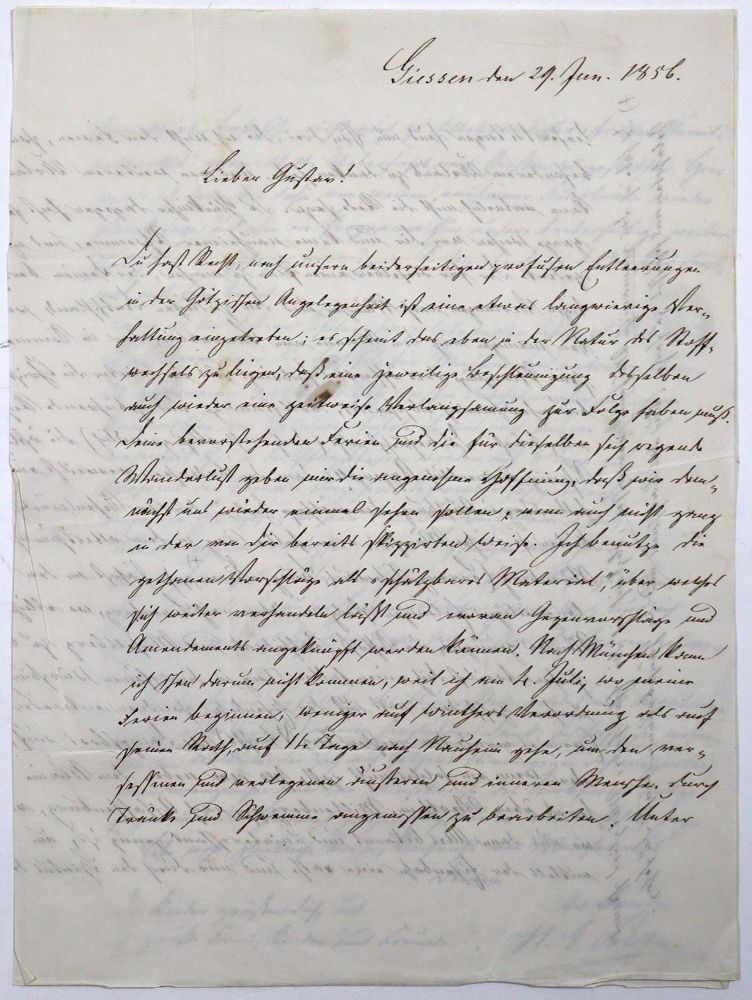 Giessen den 29. Jun. 1856.
Lieber Gustav!
Du hast Recht, nach unsern beiderseitigen profusen Entleerungen
in der Angelegenheit ist eine etwas langwierige Ver-
haltung eingetreten; es scheint das eben in der Natur des Stoff-
wechsels zu liegen, daß eine jeweilige Beschleunigung desselben
auch wieder eine zeitweise Verlangsamung zur Folge haben muß.
Deine bevorstehenden Ferien und die für dieselben sich regende
Wanderlust geben mir die angenehme Hoffnung, daß wir dem-
nächst uns wieder einmal sehen sollen, wenn auch nicht ganz
in der von dir bereits skizzirten Weise. Ich benutze die
gethanen Vorschläge als „schätzbares Material", über welches
sich weiter verhandeln läßt und woran Gegenvorschläge und
Amendements angeknüpft werden können. Nach München kann
ich schon darum nicht kommen, weil ich am Juli, wo meine
Ferien beginnen, weniger auf Winthers Verordnung als auf
seinen Rath, auf 14 Tage nach Nauheim gehe, um den ver-
sessenen und verlegenen äußeren und inneren Menschen durch
Tränke und Schwemme angemessen zu bearbeiten. Unter